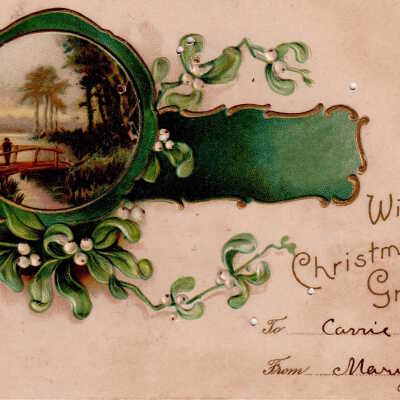 Wi
Christm
Gr
To Carrie
From Mary